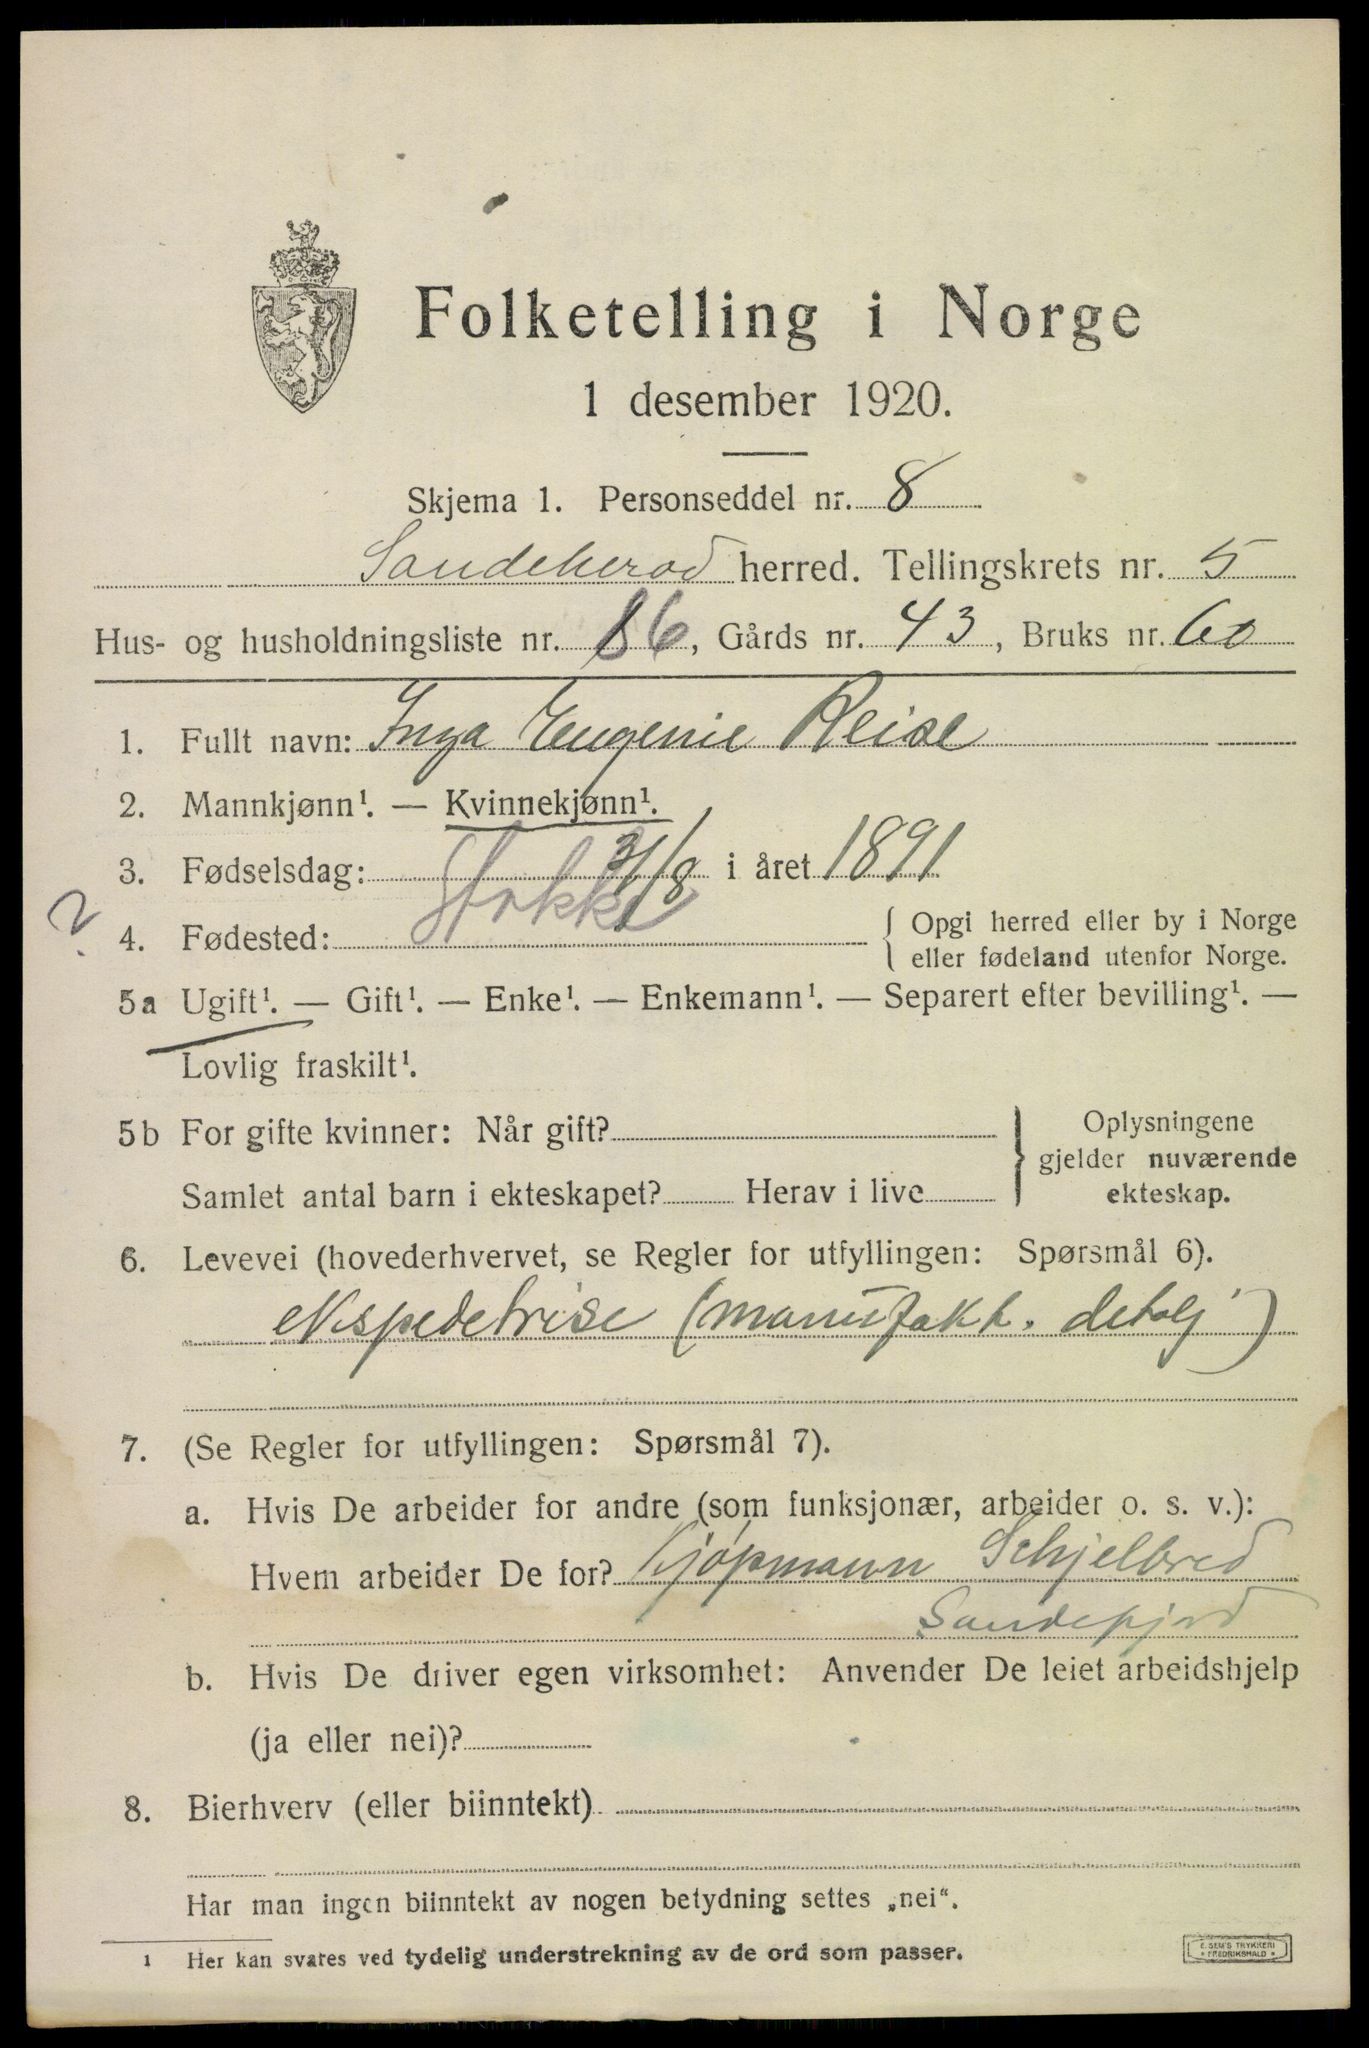 Folketelling i Norge
1 desember 1920.
Skjema 1. Personseddel nr. 8
Sandeherad herred. Tellingskrets nr. 5
Hus- og husholdningsliste nr. 86, Gårds nr. 43, Bruks nr. 60
1. Fullt navn: Inga Eugenie Reise
2. Mannkjønn¹. — Kvinnekjønn¹.
3. Fødselsdag: 31/8 i året 1891
? 4. Fødested: Stokke { Opgi herred eller by i Norge
eller fødeland utenfor Norge.
5a Ugift¹. — Gift¹. — Enke¹. — Enkemann¹. — Separert efter bevilling¹. —
Lovlig fraskilt¹.
5b For gifte kvinner: Når gift? } Oplysningene
gjelder nuværende
Samlet antal barn i ekteskapet? Herav i live ekteskap.
6. Levevei (hovederhvervet, se Regler for utfyllingen: Spørsmål 6).
ekspedetrise (manufakt. detalj)
7. (Se Regler for utfyllingen: Spørsmål 7).
a. Hvis De arbeider for andre (som funksjonær, arbeider o. s. v.):
Hvem arbeider De for? Kjøpmann Schjelbred
Sandefjord
b. Hvis De driver egen virksomhet: Anvender De leiet arbeidshjelp
(ja eller nei)?
8. Bierhverv (eller biinntekt)
Har man ingen biinntekt av nogen betydning settes „nei“.
1 Her kan svares ved tydelig understrekning av de ord som passer.
E. SEM'S TRYKKERI
* FREDRIKSHALD *